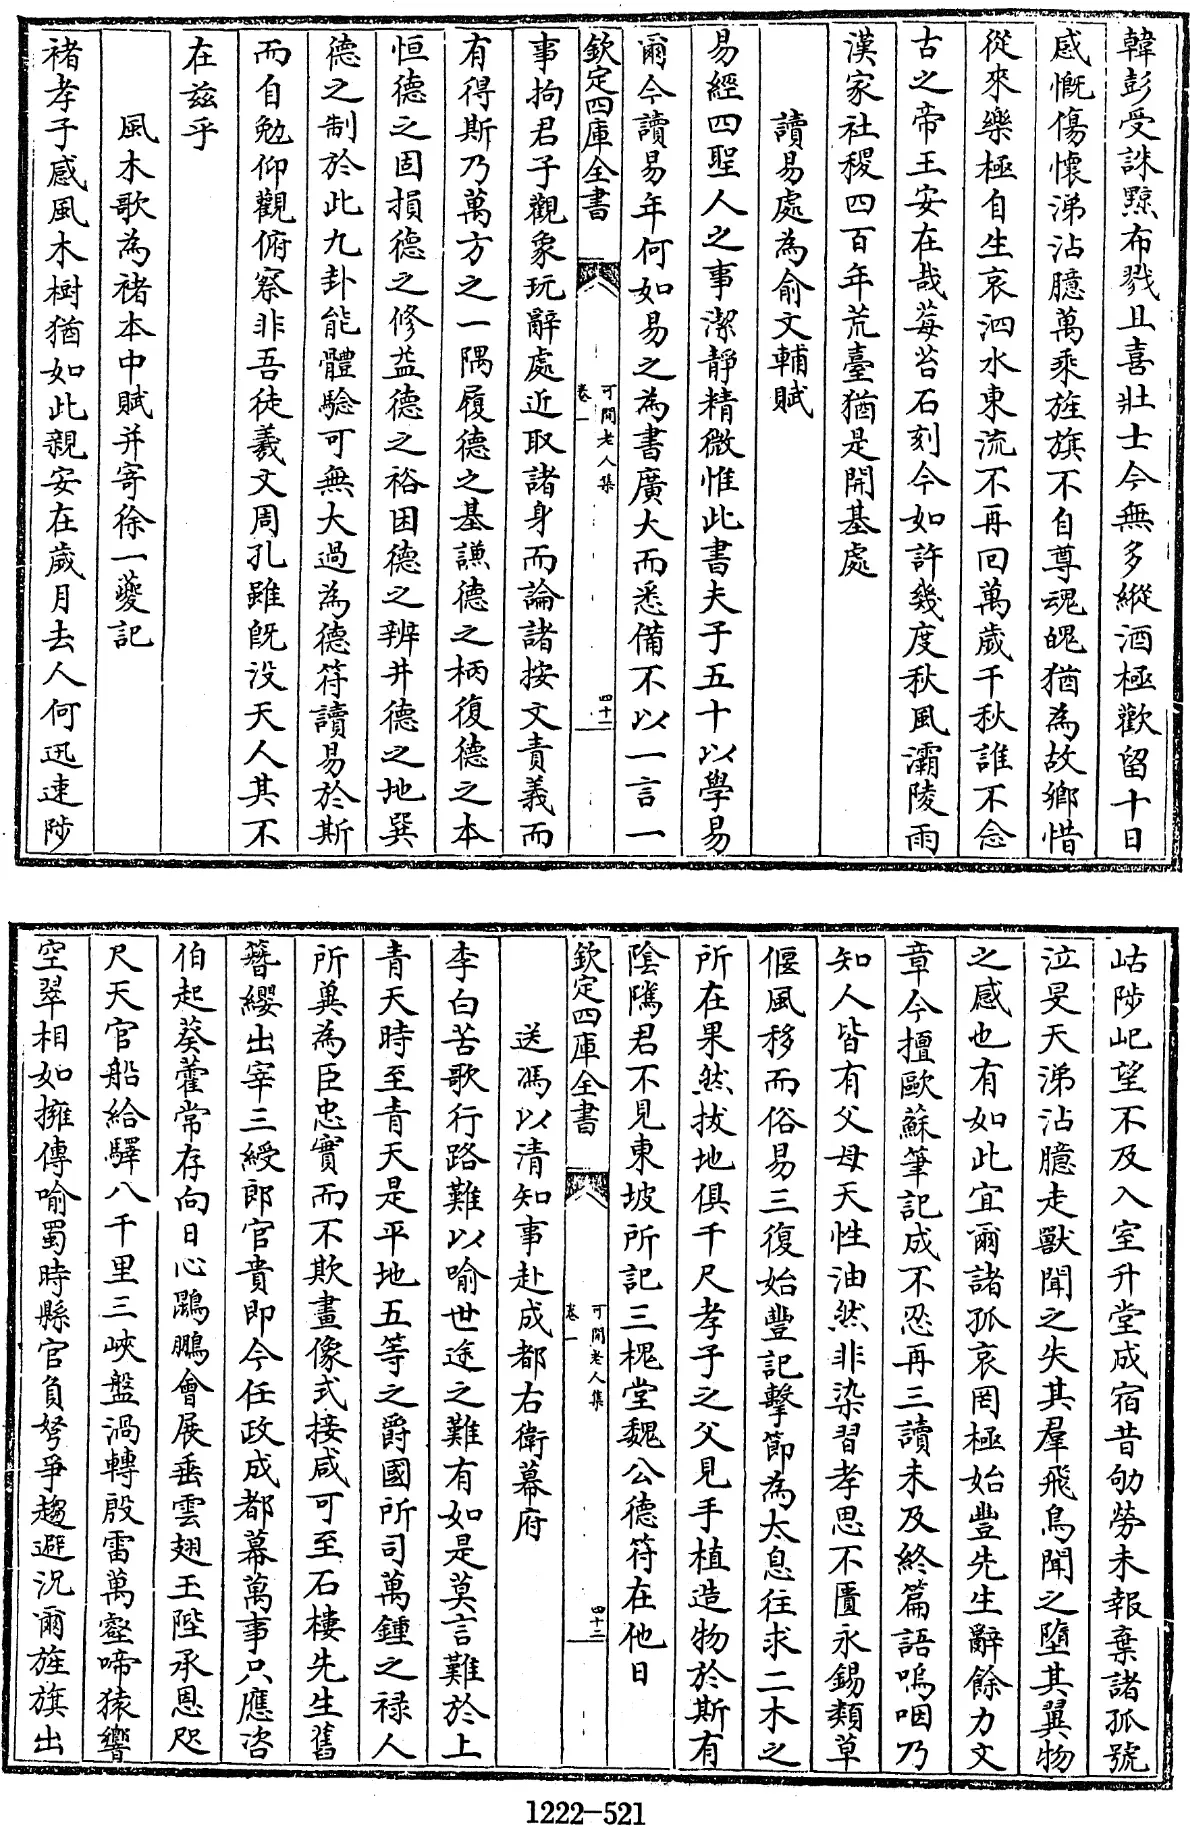 韓彭受誅黥布戮且喜壯士今無多縱酒極歡留十日
感慨傷懷涕沾臆萬乘旌旗不自尊魂魄猶為故鄉惜
從來樂極自生哀泗水東流不再回萬歲千秋誰不念
古之帝王安在哉莓苔石刻今如許幾度秋風灞陵雨
漢家社稷四百年荒臺猶是開基處
讀易處為俞文輔賦
易經四聖人之事潔靜精微惟此書夫子五十以學易
爾今讀易年何如易之為書廣大而悉備不以一言一
欽定四庫全書
可閒老人集
卷一
四十二
事拘君子觀象玩辭處近取諸身而論諸按文責義而
有得斯乃萬方之一隅履德之基謙德之柄復德之本
恒德之固損德之修益德之裕困德之辨井德之地巽
德之制於此九卦能體驗可無大過為德符讀易於斯
而自勉仰觀俯察非吾徒羲文周孔雖旣没天人其不
在兹乎
風木歌為禇本中賦并寄徐一夔記
禇孝子感風木樹猶如此親安在歲月去人何迅速陟
岵陟屺望不及入室升堂成宿昔劬勞未報棄諸孤號
泣旻天涕沾臆走獸聞之失其羣飛鳥聞之墮其翼物
之感也有如此宜爾諸孤哀罔極始豐先生辭餘力文
章今擅歐蘇筆記成不忍再三讀未及終篇語嗚咽乃
知人皆有父母天性油然非染習孝思不匱永錫類草
偃風移而俗易三復始豐記擊節為太息往求二木之
所在果然拔地俱千尺孝子之父見手植造物於斯有
陰隲君不見東坡所記三槐堂魏公德符在他日
欽定四庫全書
可閒老人集
卷一
四十三
送馮以清知事赴成都右衛幕府
李白苦歌行路難以喻世途之難有如是莫言難於上
青天時至青天是平地五等之爵國所司萬鍾之禄人
所兾為臣忠實而不欺畫像式接咸可至石樓先生舊
簪纓出宰三綬郎官貴即今任政成都幕萬事只應咨
伯起葵藿常存向日心鵾鵬會展垂雲翅玉陛承恩咫
尺天官船給驛八千里三峽盤渦轉殷雷萬壑啼猿響
空翠相如擁傳喻蜀時縣官負弩爭趨避況爾旌旗出
1222-521